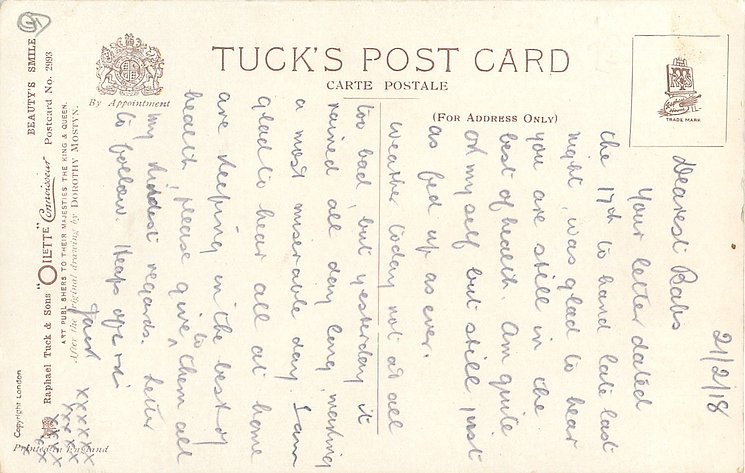 TUCK'S POST CARD
CARTE POSTALE
(FOR ADDRESS ONLY)
By Appointment
TRADE MARK
BEAUTY'S SMILE
"OILETTE" Connoisseur Postcard No. 2993
Raphael Tuck & Sons
ART PUBLISHERS TO THEIR MAJESTIES THE KING & QUEEN.
After the original drawing by DOROTHY MOSTYN.
Copyright London
Printed in England
21/2/18
Dearest Babs
Your letter dated
the 17th to hand late last
night, was glad to hear
you are still in the
best of health Am quite
ok myself but still just
as fed up as ever.
Weather today not at all
too bad, but yesterday it
rained all day long, making
a most miserable day. I am
glad to hear all at home
are keeping in the best of
health, please give to them all
my kindest regards, letter
to follow. Heaps of
Jack xxxxxx
xxxxx
xxxx